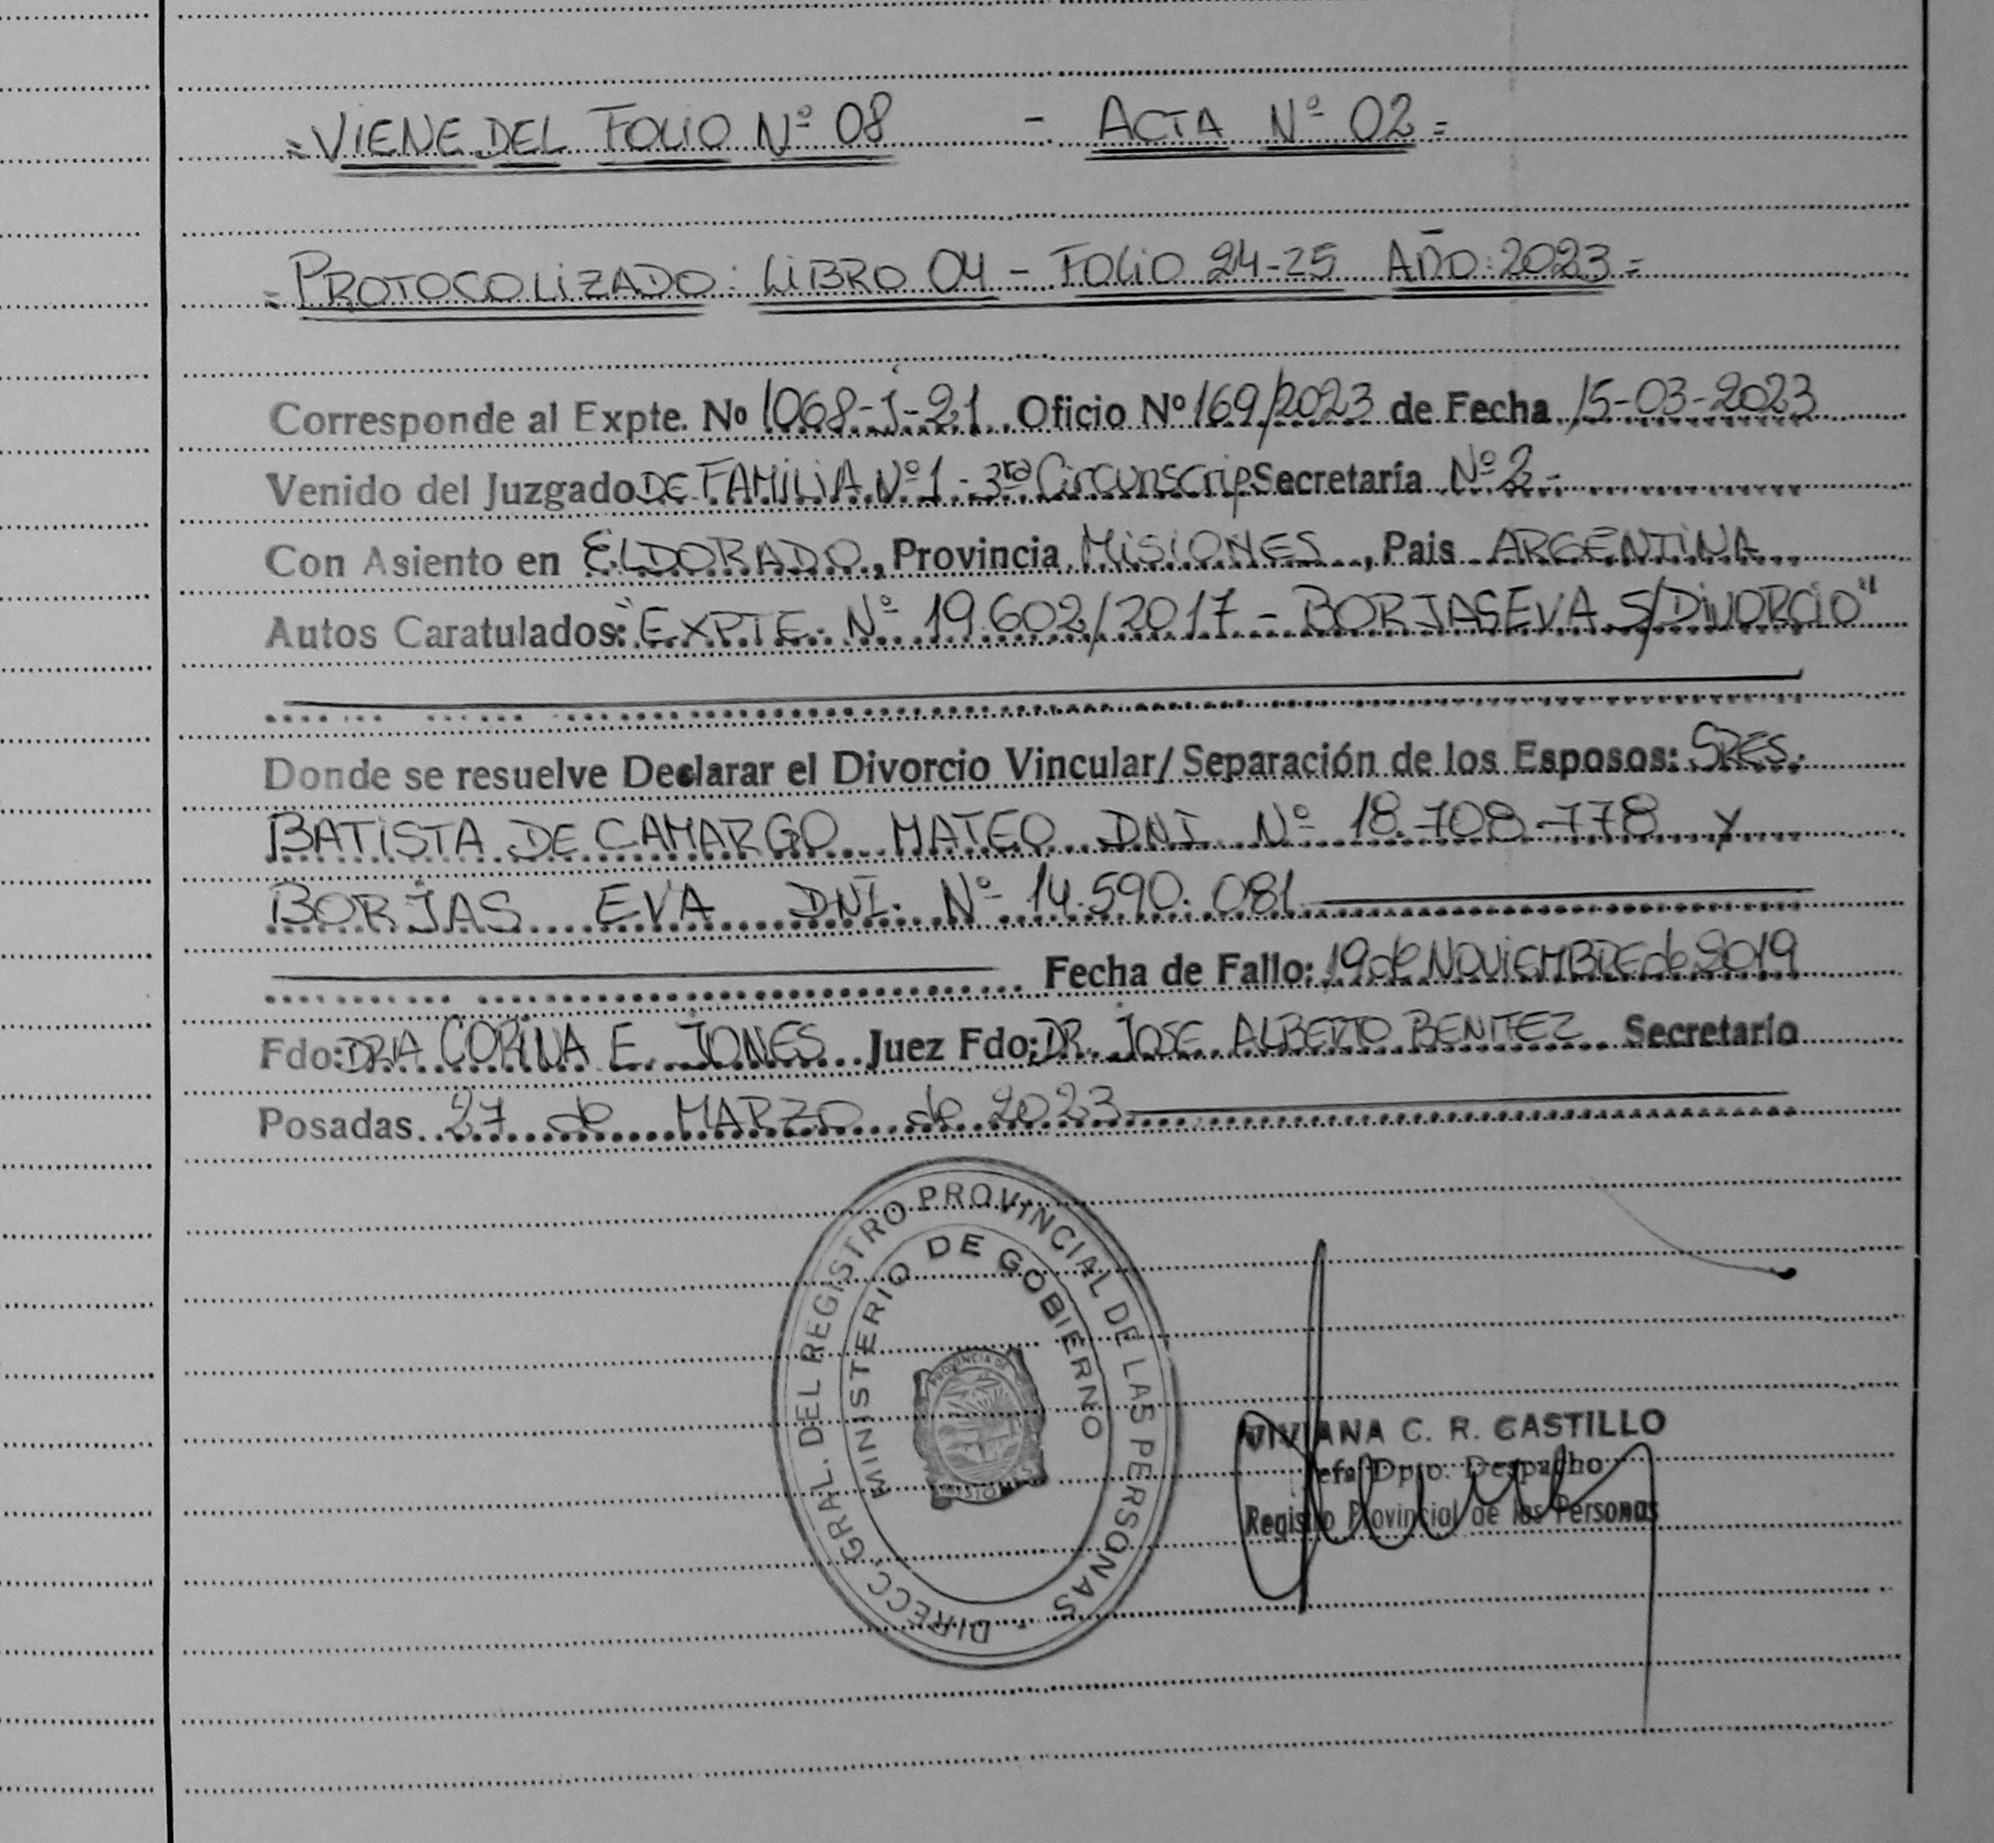 = VIENE DEL FOLIO Nº 08 - ACTA Nº 02 =
= PROTOCOLIZADO: LIBRO 04 - FOLIO 24-25 AÑO: 2023 =
Corresponde al Expte. Nº 1068-J-21 Oficio Nº 169/2023 de Fecha 15-03-2023
Venido del Juzgado DE FAMILIA Nº 1 - 3ra Circunscrip Secretaría Nº 2 -
Con Asiento en ELDORADO, Provincia MISIONES, Pais ARGENTINA
Autos Caratulados: "EXPTE. Nº 19.602/2017 - BORJAS EVA S/DIVORCIO"
Donde se resuelve Declarar el Divorcio Vincular/ Separación de los Esposos: SRES.
BATISTA DE CAMARGO MATEO DNI Nº 18.708.778 y
BORJAS EVA DNI. Nº 14.590.081
Fecha de Fallo: 19 de NOVIEMBRE de 2019
Fdo: DRA CORINA E. JONES Juez Fdo: DR. JOSE ALBERTO BENITEZ Secretario
Posadas 27 de MARZO de 2023
DIRECC. GRAL. DEL REGISTRO PROVINCIAL DE LAS PERSONAS
MINISTERIO DE GOBIERNO
PROVINCIA DE
MISIONES
VIVIANA C. R. CASTILLO
Jefa Dpto. Despacho
Registro Provincial de las Personas